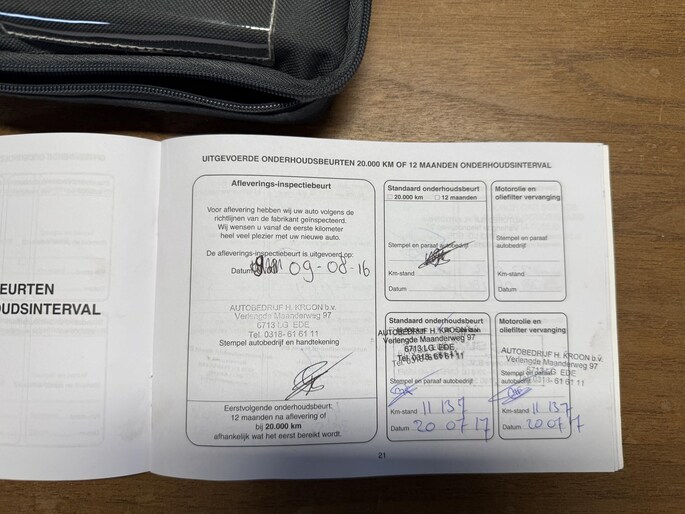 EURTEN
HOUDSINTERVAL
UITGEVOERDE ONDERHOUDSBEURTEN 20.000 KM OF 12 MAANDEN ONDERHOUDSINTERVAL
Afleverings-inspectiebeurt
Voor aflevering hebben wij uw auto volgens de
richtlijnen van de fabrikant geïnspecteerd.
Wij wensen u vanaf de eerste kilometer
heel veel plezier met uw nieuwe auto.
De afleverings-inspectiebeurt is uitgevoerd op:
Datum 09-08-16
AUTOBEDRIJF H. KROON b.v.
Verlengde Maanderweg 97
6713 LG EDE
Tel. 0318- 61 61 11
Stempel autobedrijf en handtekening
Eerstvolgende onderhoudsbeurt:
12 maanden na aflevering of
bij 20.000 km
afhankelijk wat het eerst bereikt wordt.
Standaard onderhoudsbeurt
20.000 km 12 maanden
Stempel en paraaf autobedrijf
Km-stand
Datum
Motorolie en
oliefilter vervanging
Stempel en paraaf
autobedrijf
Km-stand
Datum
Standaard onderhoudsbeurt
AUTOBEDRIJF H. KROON b.v.
Verlengde Maanderweg 97
6713 LG EDE
Tel. 0318- 61 61 11
Stempel en paraaf autobedrijf
Km-stand 11 137
Datum 20 07 17
Motorolie en
oliefilter vervanging
AUTOBEDRIJF H. KROON b.v.
Verlengde Maanderweg 97
6713 LG EDE
Tel. 0318- 61 61 11
Stempel en paraaf
autobedrijf
Km-stand 11 137
Datum 20 07 17
21